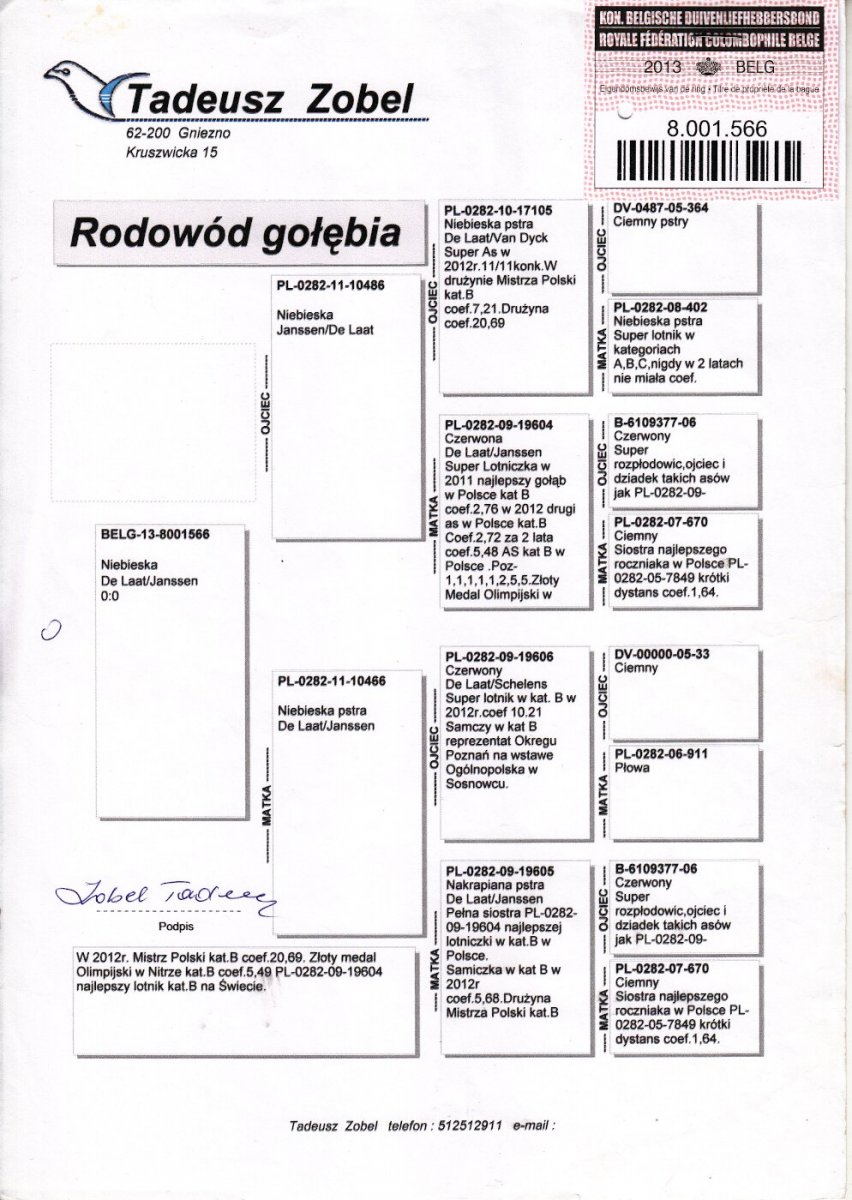 KON. BELGISCHE DUIVENLIEFHEBBERSBOND
ROYALE FÉDÉRATION COLOMBOPHILE BELGE
2013 BELG
Eigendomsbewijs van de ring • Titre de propriété de la bague
8.001.566
Tadeusz Zobel
62-200 Gniezno
Kruszwicka 15
Rodowód gołębia
BELG-13-8001566
Niebieska
De Laat/Janssen
0:0
OJCIEC
PL-0282-11-10486
Niebieska
Janssen/De Laat
MATKA
PL-0282-11-10466
Niebieska pstra
De Laat/Janssen
OJCIEC
PL-0282-10-17105
Niebieska pstra
De Laat/Van Dyck
Super As w
2012r.11/11konk.W
drużynie Mistrza Polski
kat.B
coef.7,21.Drużyna
coef.20,69
MATKA
PL-0282-09-19604
Czerwona
De Laat/Janssen
Super Lotniczka w
2011 najlepszy gołąb
w Polsce kat B
coef.2,76 w 2012 drugi
as w Polsce kat.B
Coef.2,72 za 2 lata
coef.5,48 AS kat B w
Polsce .Poz-
1,1,1,1,1,2,5,5.Złoty
Medal Olimpijski w
OJCIEC
PL-0282-09-19606
Czerwony
De Laat/Schelens
Super lotnik w kat. B w
2012r.coef 10.21
Samczy w kat B
reprezentat Okregu
Poznań na wstawe
Ogólnopolska w
Sosnowcu.
MATKA
PL-0282-09-19605
Nakrapiana pstra
De Laat/Janssen
Pełna siostra PL-0282-
09-19604 najlepszej
lotniczki w kat.B w
Polsce.
Samiczka w kat B w
2012r
coef.5,68.Drużyna
Mistrza Polski kat.B
OJCIEC
DV-0487-05-364
Ciemny pstry
MATKA
PL-0282-08-402
Niebieska pstra
Super lotnik w
kategoriach
A,B,C,nigdy w 2 latach
nie miała coef.
OJCIEC
B-6109377-06
Czerwony
Super
rozpłodowic,ojciec i
dziadek takich asów
jak PL-0282-09-
MATKA
PL-0282-07-670
Ciemny
Siostra najlepszego
roczniaka w Polsce PL-
0282-05-7849 krótki
dystans coef.1,64.
OJCIEC
DV-00000-05-33
Ciemny
MATKA
PL-0282-06-911
Płowa
OJCIEC
B-6109377-06
Czerwony
Super
rozpłodowic,ojciec i
dziadek takich asów
jak PL-0282-09-
MATKA
PL-0282-07-670
Ciemny
Siostra najlepszego
roczniaka w Polsce PL-
0282-05-7849 krótki
dystans coef.1,64.
Zobel Tadeusz
Podpis
W 2012r. Mistrz Polski kat.B coef.20,69. Złoty medal
Olimpijski w Nitrze kat.B coef.5,49 PL-0282-09-19604
najlepszy lotnik kat.B na Świecie.
Tadeusz Zobel telefon : 512512911 e-mail :